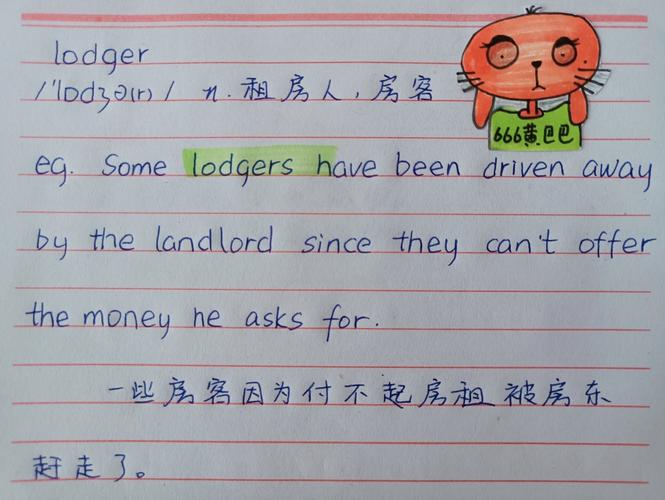 lodger
/'lɒdʒə(r)/ n. 租房人，房客
666黄巴巴
eg. Some lodgers have been driven away
by the landlord since they can't offer
the money he asks for.
一些房客因为付不起房租被房东
赶走了。